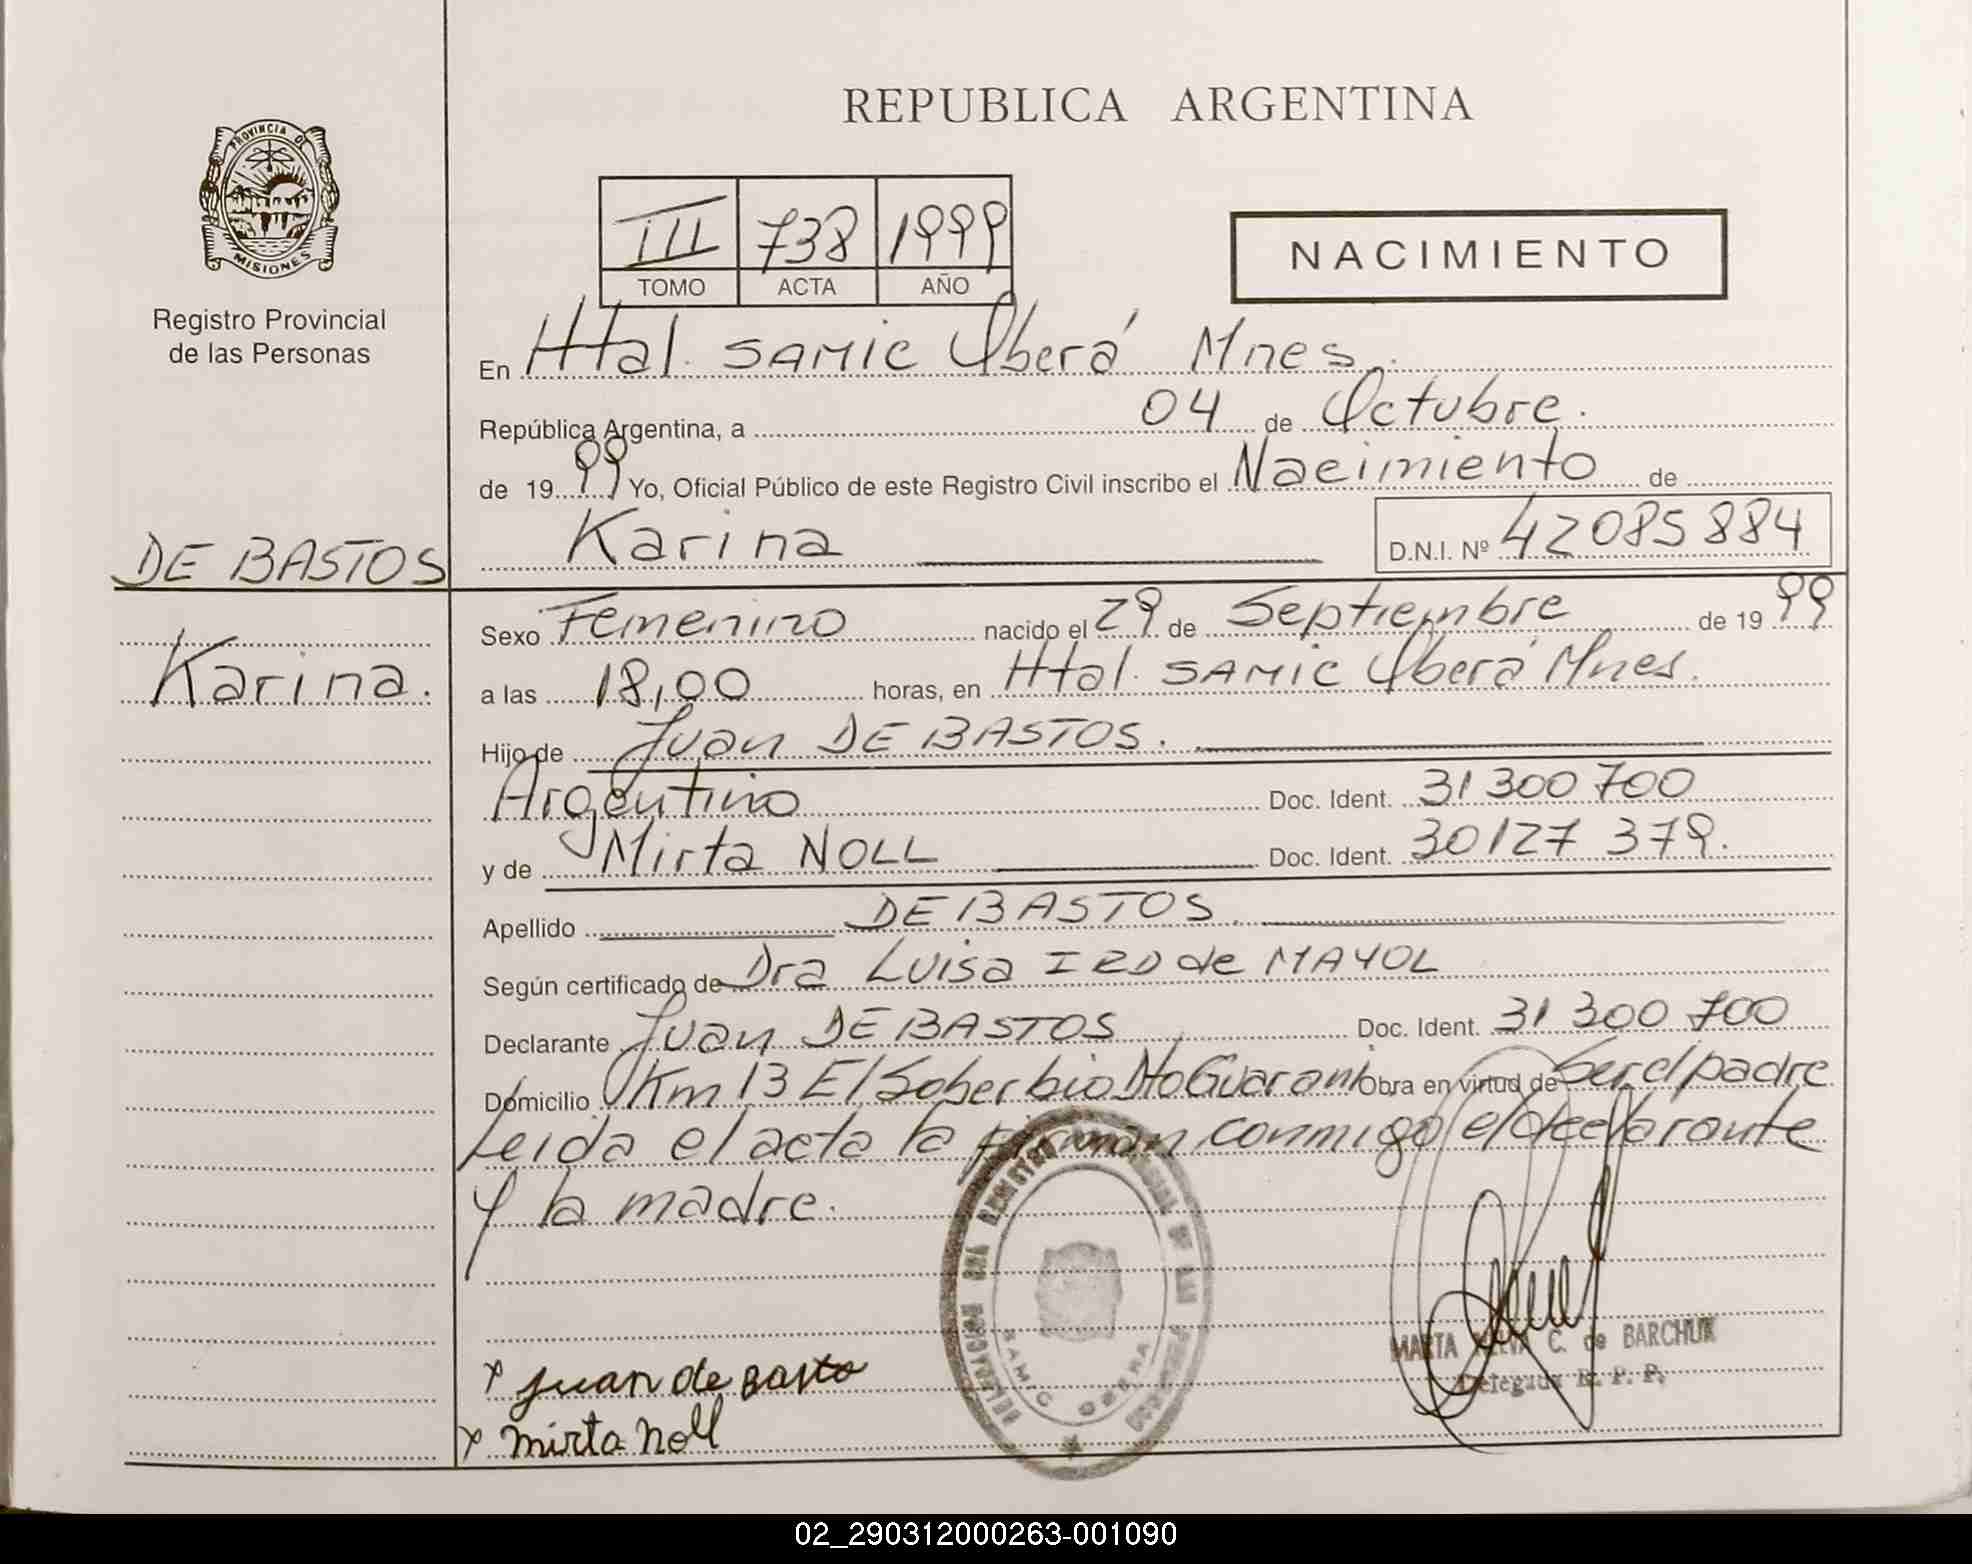 REPUBLICA ARGENTINA
PROVINCIA DE
MISIONES
Registro Provincial
de las Personas
III 738 1999
TOMO ACTA AÑO
NACIMIENTO
En Htal. SAMIC Oberá Mnes.
República Argentina, a 04 de Octubre.
de 1999 Yo, Oficial Público de este Registro Civil inscribo el Nacimiento de
Karina D.N.I. Nº 42085884
DE BASTOS
Karina.
Sexo Femenino nacido el 29 de Septiembre de 1999
a las 18,00 horas, en Htal. SAMIC Oberá Mnes.
Hijo de Juan DE BASTOS.
Argentino Doc. Ident. 31 300 700
y de Mirta NOLL Doc. Ident. 30127 379.
Apellido DE BASTOS.
Según certificado de Dra Luisa de MAYOL
Declarante Juan DE BASTOS Doc. Ident. 31 300 700
Domicilio Km 13 El Soberbio Dto Guaraní Obra en virtud de Ser el padre
Leida el acta la firman conmigo el declarante
y la madre.
x juan de basto
x mirta noll
SAMIC OBERA
MARTA C. de BARCHUK
Delegada R. P. P.
02_290312000263-001090